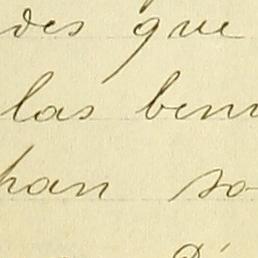 des que
las ben
han so